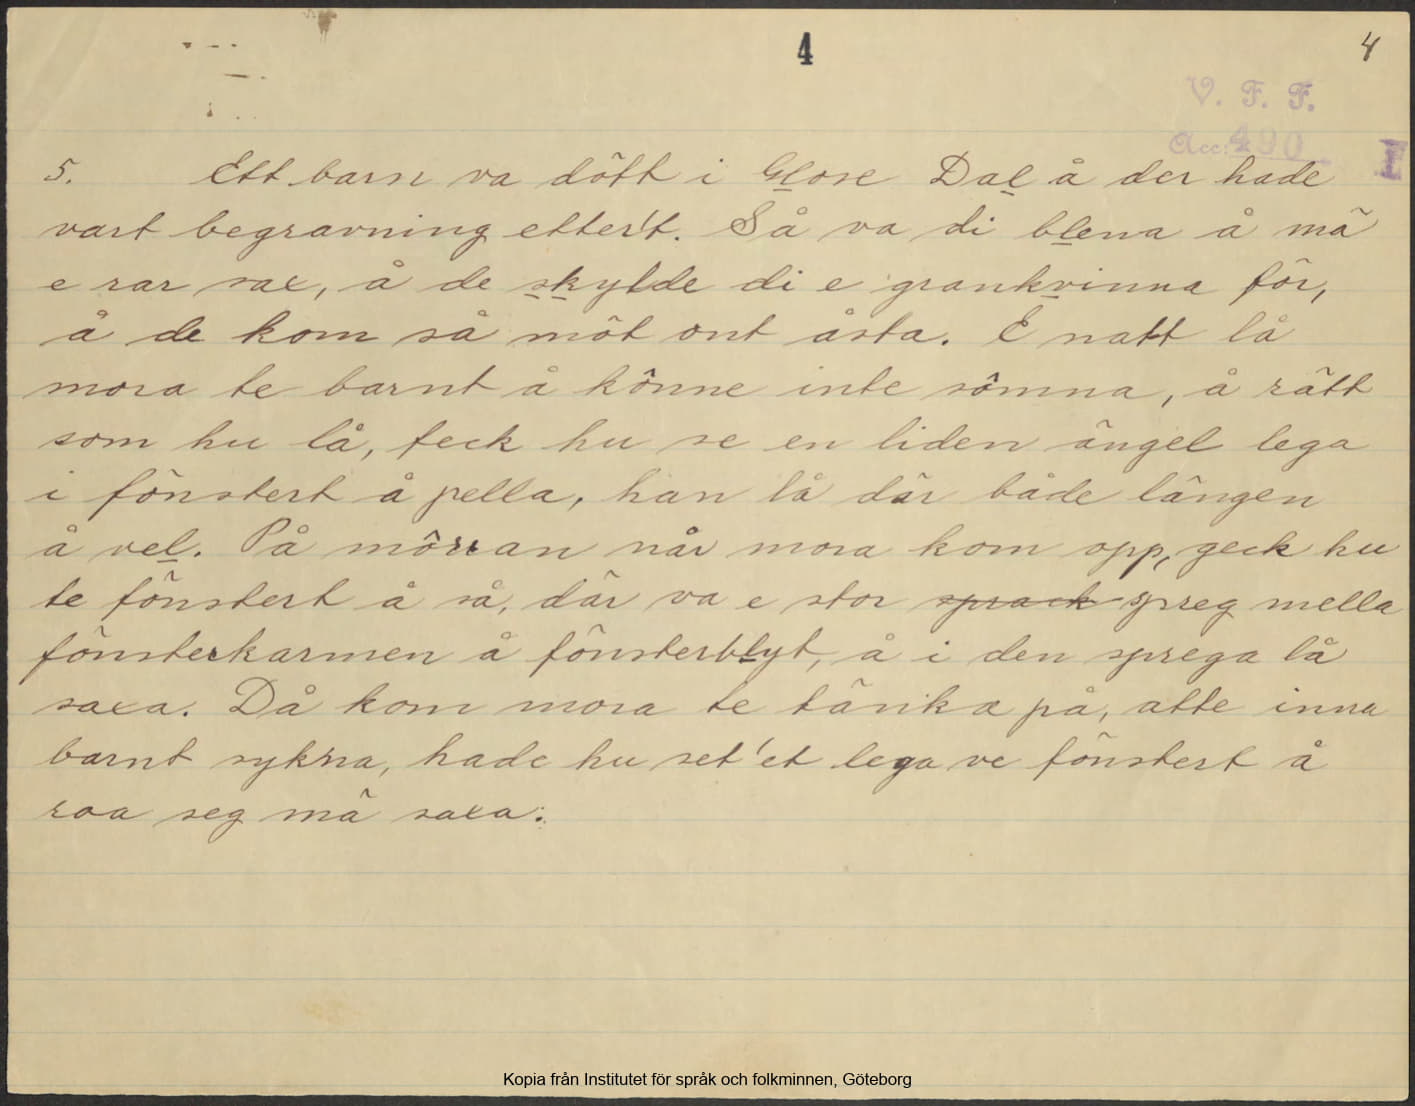 4
4
V. F. F.
Acc: 490
5. Ett barn va dött i Glose Dal å der hade
vart begravning etter't. Så va di blena å mä
e rar sax, å de skylde di e grankvinna för,
å de kom så möt ont åsta. E natt lå
mora te barnt å könne inte sömna, å rätt
som hu lå, feck hu se en liden ängel lega
i fönstert å pella, han lå där både längen
å vel. På mörran når mora kom opp, geck hu
te fönstert å så, där va e stor sprack spreg mella
fönsterkarmen å fönsterblyt, å i den sprega lå
saxa. Då kom mora te tänka på, atte inna
barnt sykna, hade hu set'et lega ve fönstert å
roa seg mä saxa.
Kopia från Institutet för språk och folkminnen, Göteborg